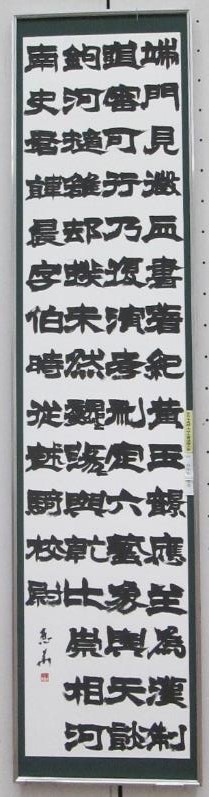 端門見徵血書著紀黃玉韻應主為漢制
道審可行乃復演孝刪定六藝象與天談
鉤河擿雒卻揆未然巍〻蕩〻與乾比崇相河
南史君諱晨字伯時從越騎校尉